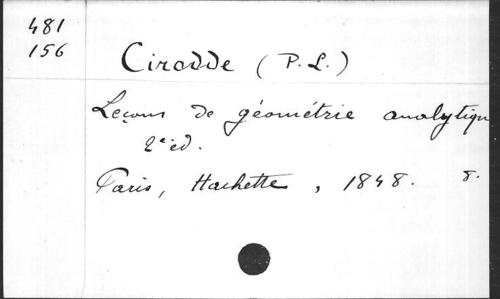 481
156
Cirodde (P.L.)
Leçons de géométrie analytiqu
2e éd.
Paris, Hachette, 1848. 8.